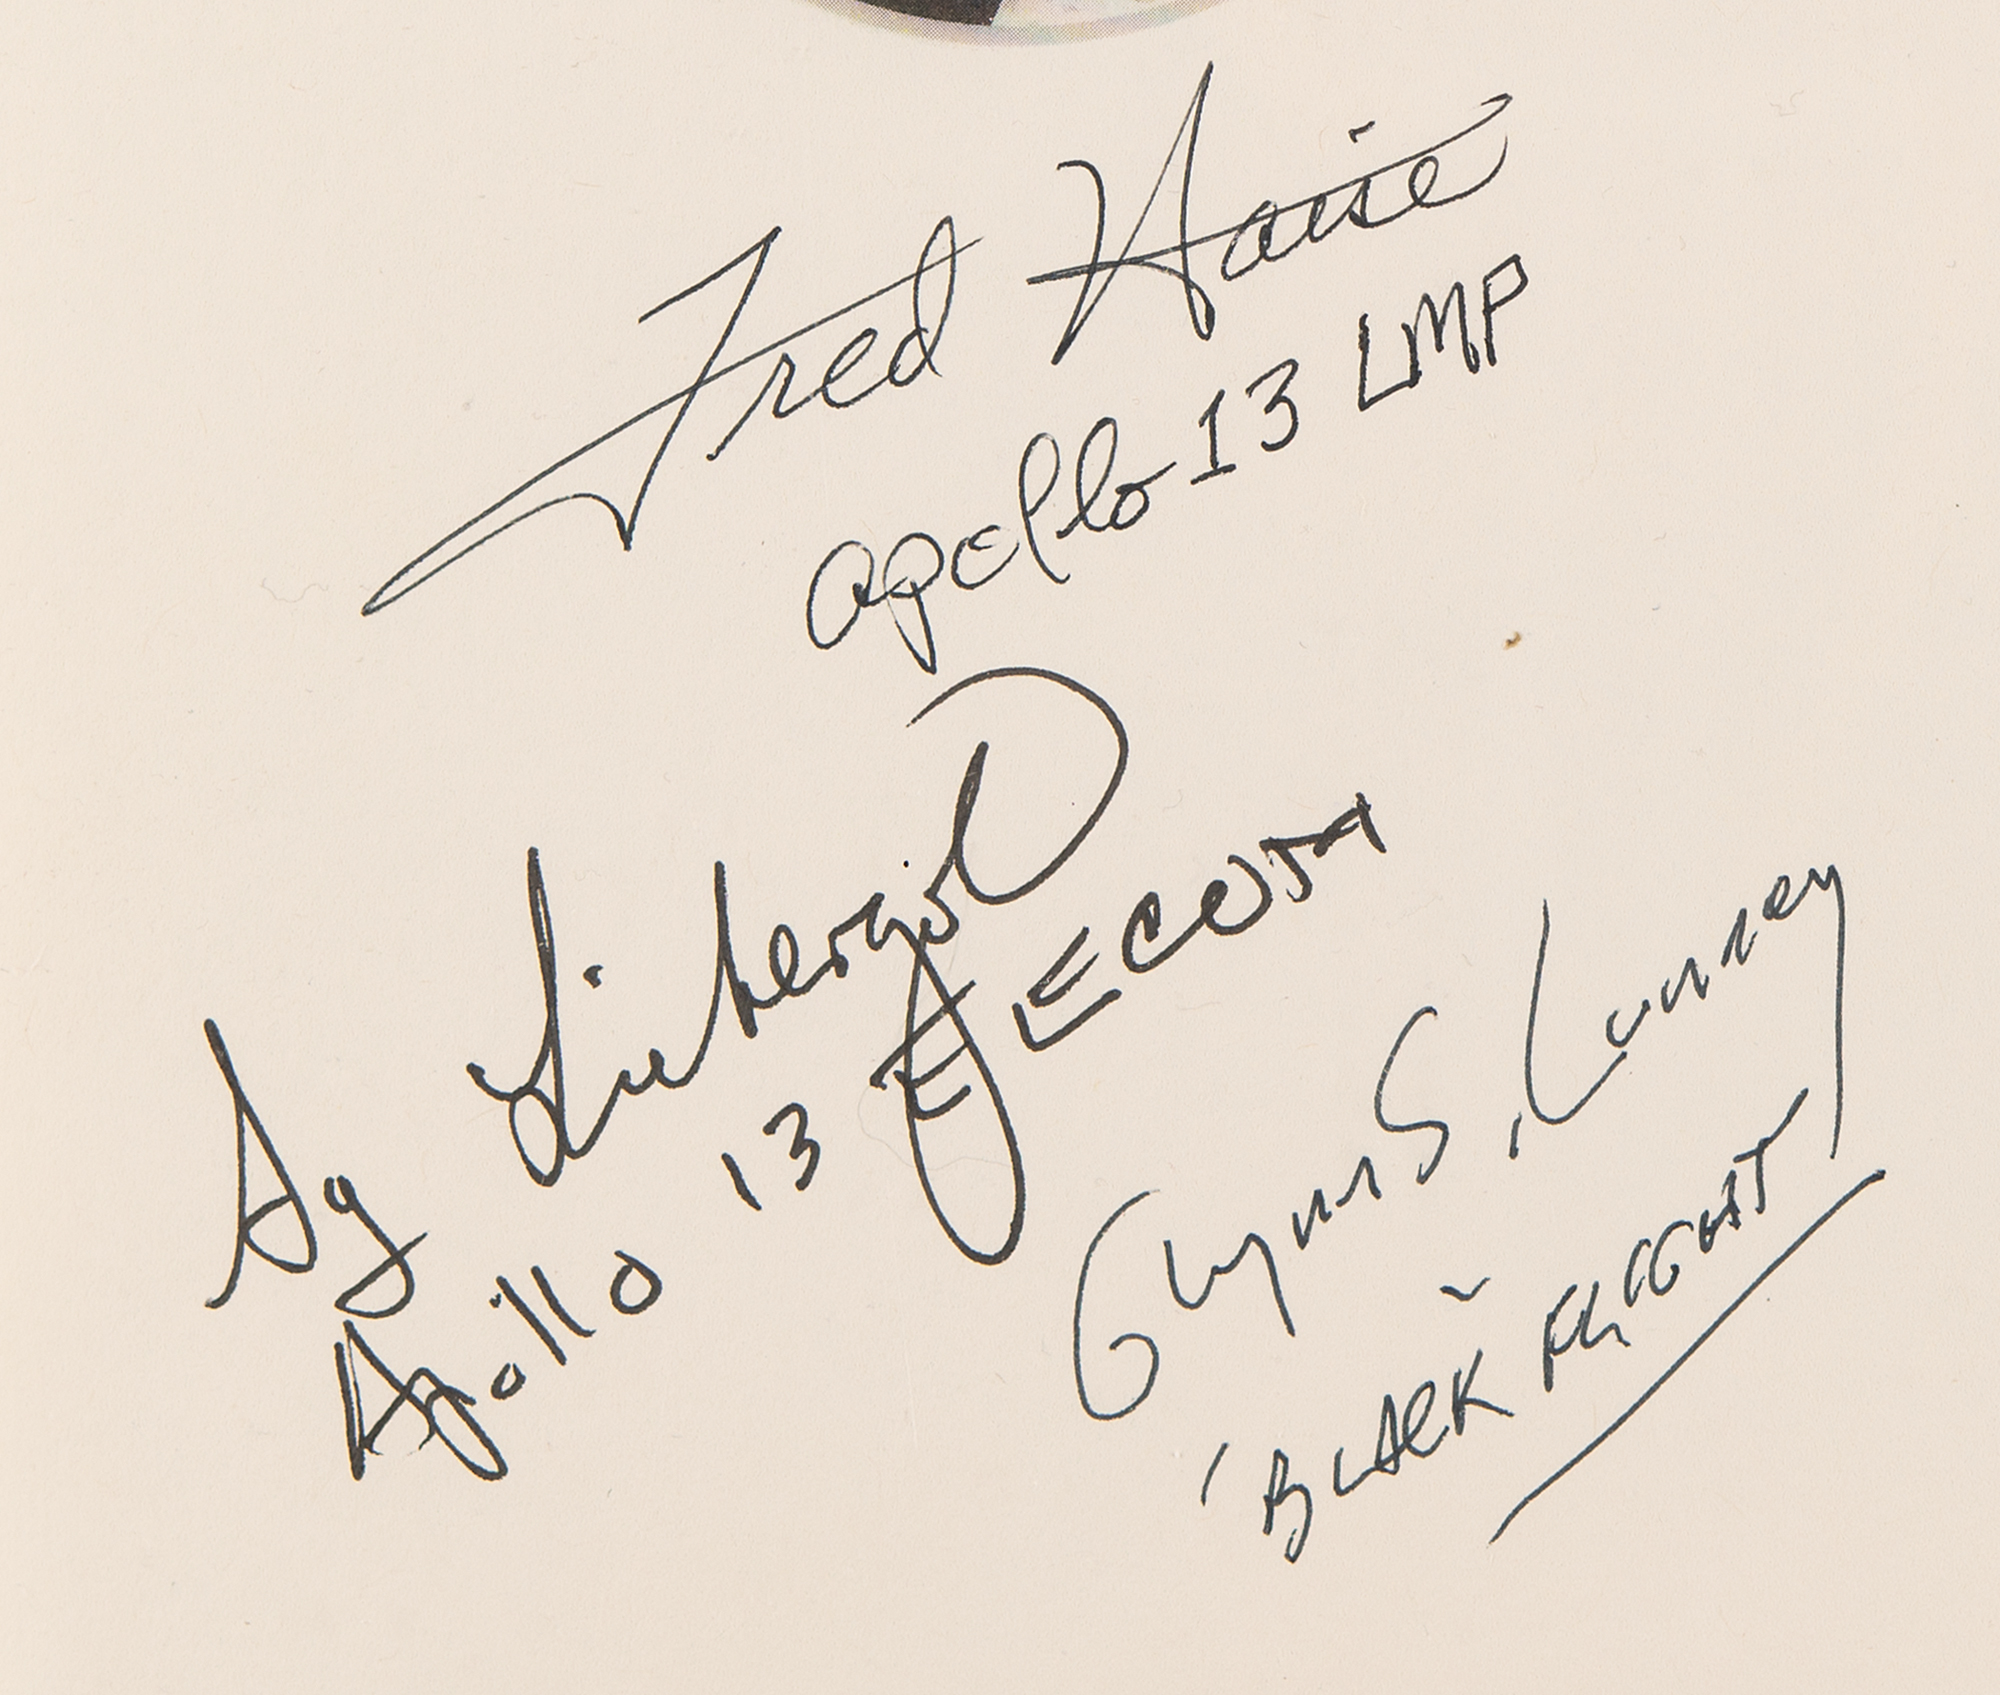 Fred Haise
apollo 13 LMP
Sy Liebergot
Apollo 13 EECOM
Glynn S. Lunney
'BLACK FLIGHT'